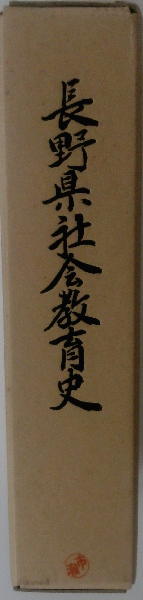 長野県社会教育史